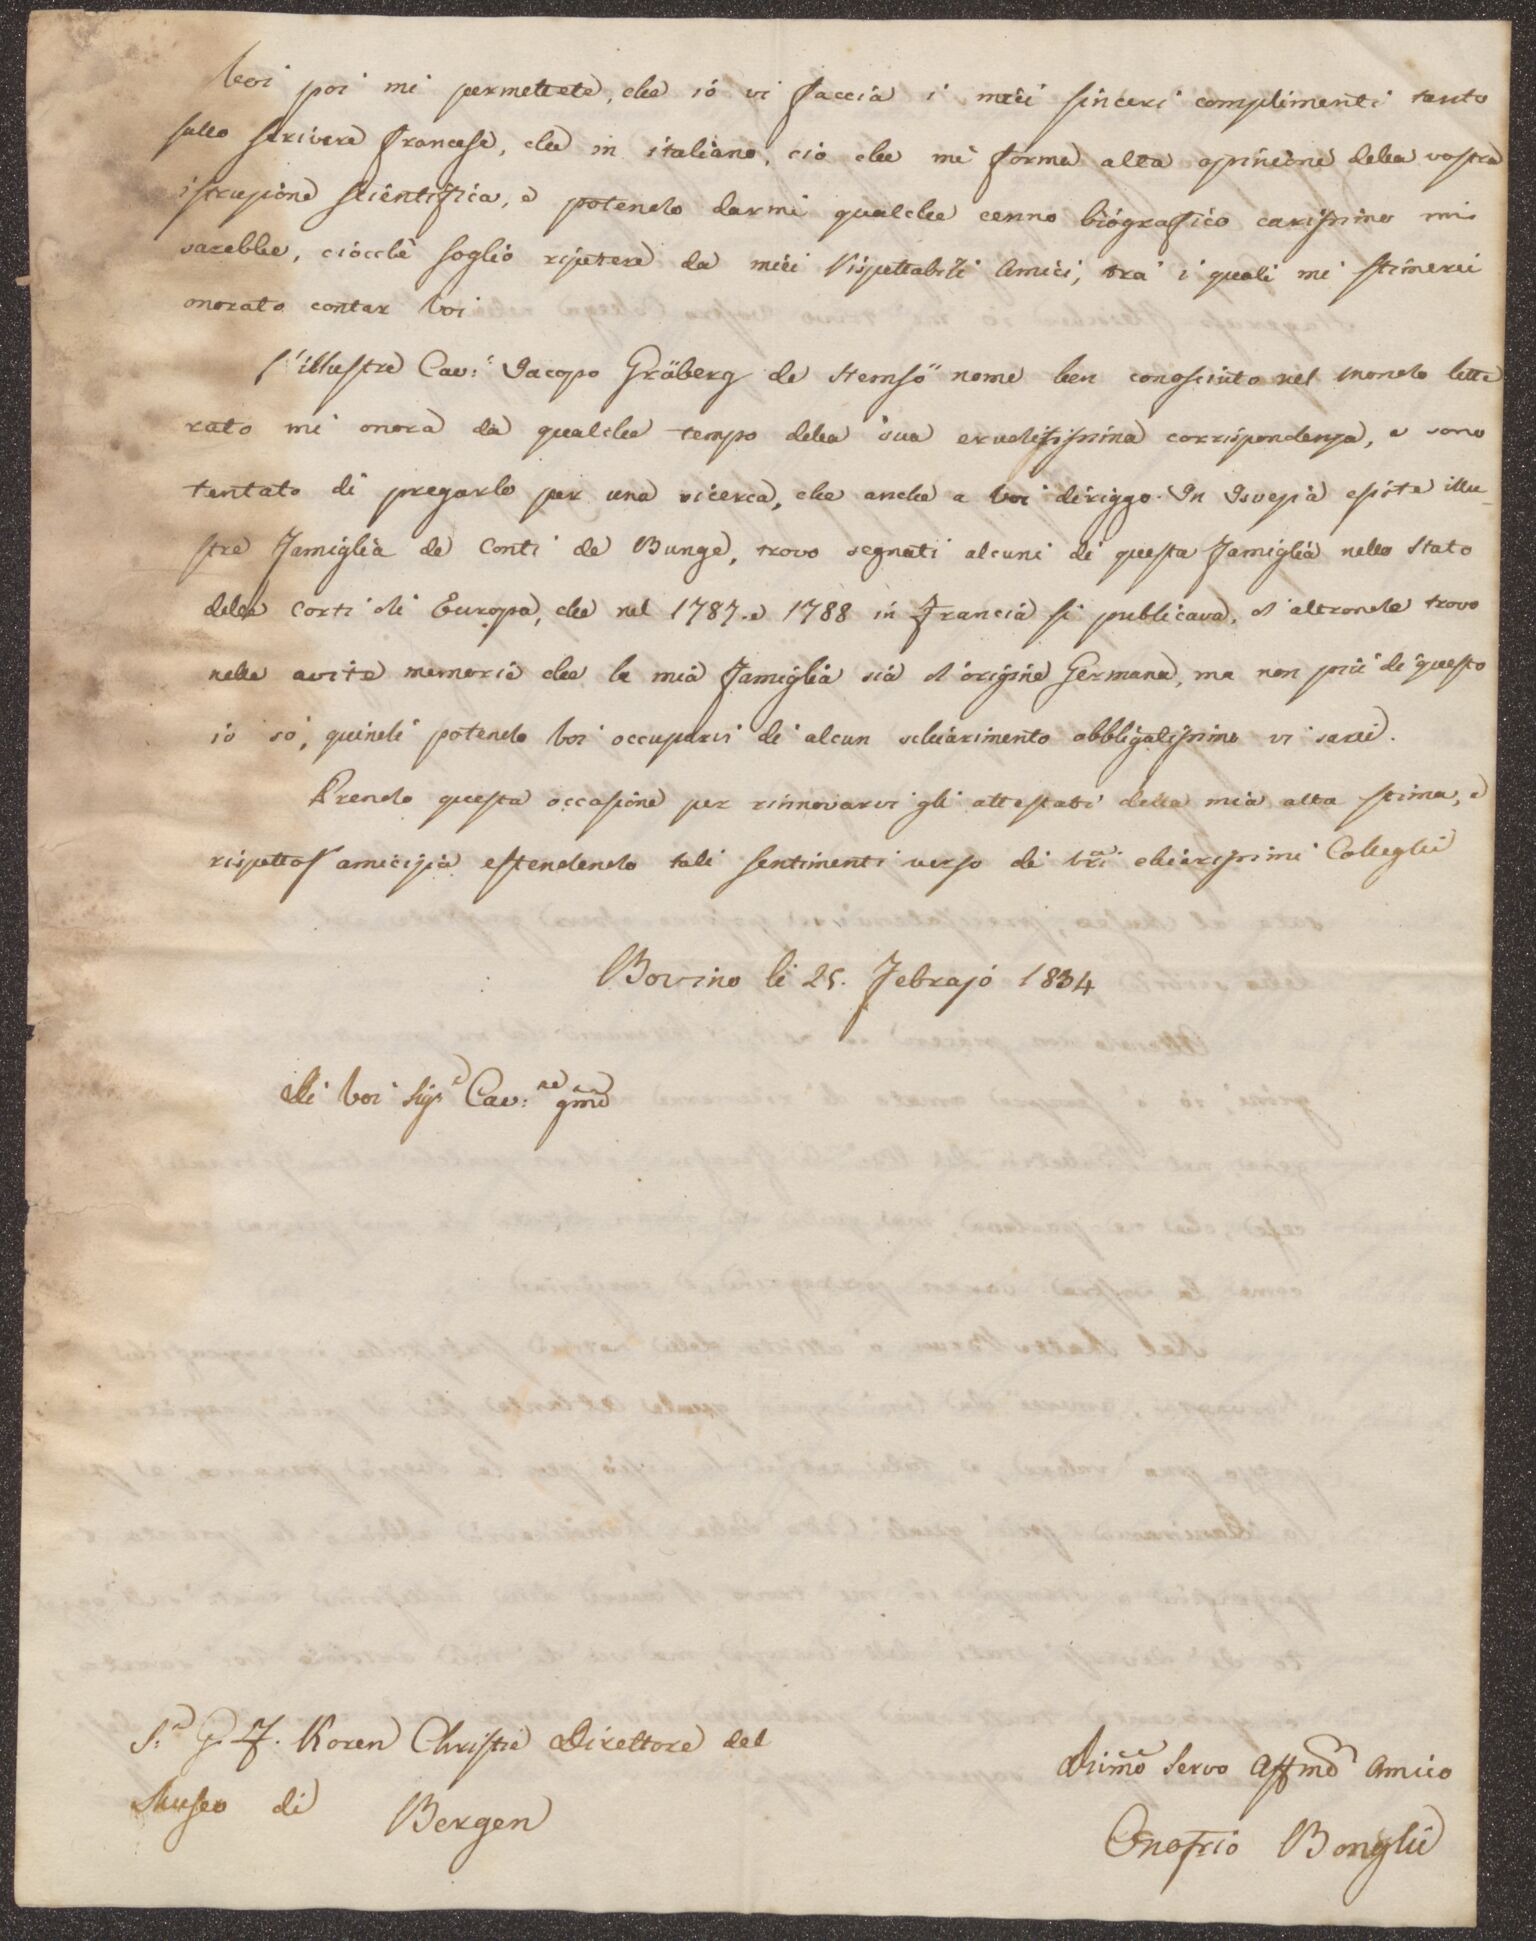 Voi poi mi permettete, che io vi faccia i miei sinceri complimenti tanto
sullo scrivere francese, che in italiano, ciò che mi forma alta opinione della vostra
istruzione scientifica, e potendo darmi qualche cenno biografico carissimo mi
sarebbe, ciocchè soglio ripetere da miei rispettabili Amici, tra i quali mi stimerei
onorato contar Voi
L'illustre Cav: Jacopo Gräberg de Hemsö nome ben conosciuto nel mondo lette
rato mi onora da qualche tempo della sua eruditissima corrispondenza, e sono
tentato di pregarlo per una ricerca, che anche a Voi diriggo. In Isvezia esiste illu-
stre Famiglia de Conti de Bunge, trovo segnati alcuni di questa Famiglia nello Stato
delle Corti di Europa, che nel 1787. e 1788 in Francia si publicava, d'altronde trovo
nelle avite memorie che la mia Famiglia sia d'origine Germana, ma non più di questo
io so, quindi potendo Voi occuparvi di alcun schiarimento obbligatissimo vi sarei.
Prendo questa occasione per rinnovarvi gli attestati della mia alta stima, e
rispettos' amicizia estendendo tali sentimenti verso di vri chiarissimi Colleghi
Bovino li 25. Febrajo 1834
Di Voi Sigr Cav: re gmo
S.r J. F. Koren Christie Direttore del
Museo di Bergen
Dvmo Servo Affmo Amico
Onofrio Bonghi